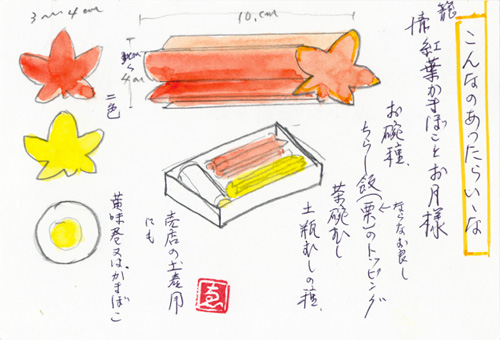 こんなのあったらいいな
紅葉かまぼことお月様
お碗種、
ちらし飯(栗)のトッピング
ならなお良し
茶碗むし
土瓶むしの種、
売店の土産用
にも
10.cm
3cm〜4cm
二色
黄味巻又は、かまぼこ